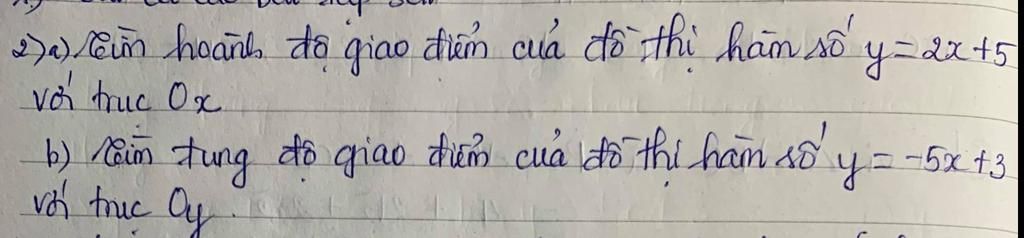 2) a) Tìm hoành độ giao điểm của đồ thị hàm số y = 2x + 5
với trục Ox
b) Tìm tung độ giao điểm của đồ thị hàm số y = -5x + 3
với trục Oy.